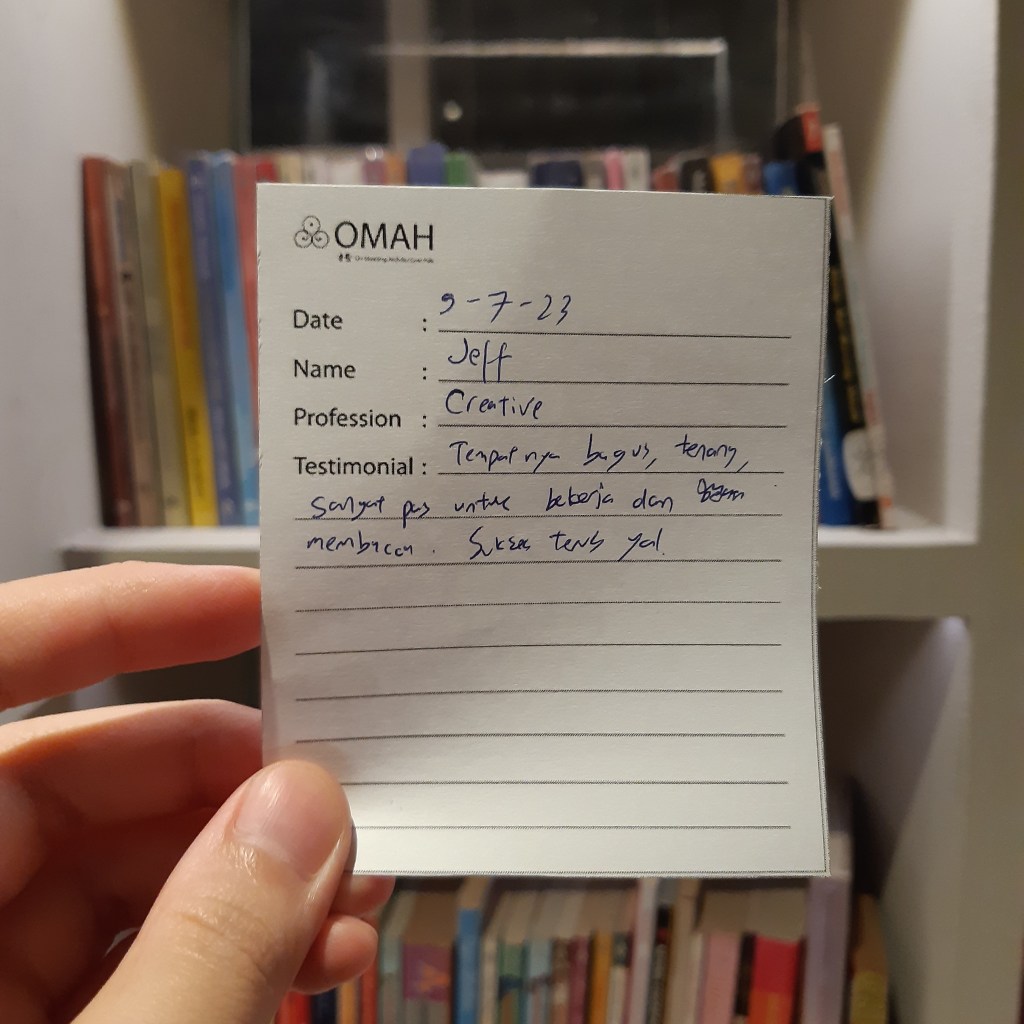 OMAH
Date : 9-7-23
Name : Jeff
Profession : Creative
Testimonial : Tempatnya bagus, tenang,
sangat pas untuk bekerja dan
membaca. Sukses terus ya!